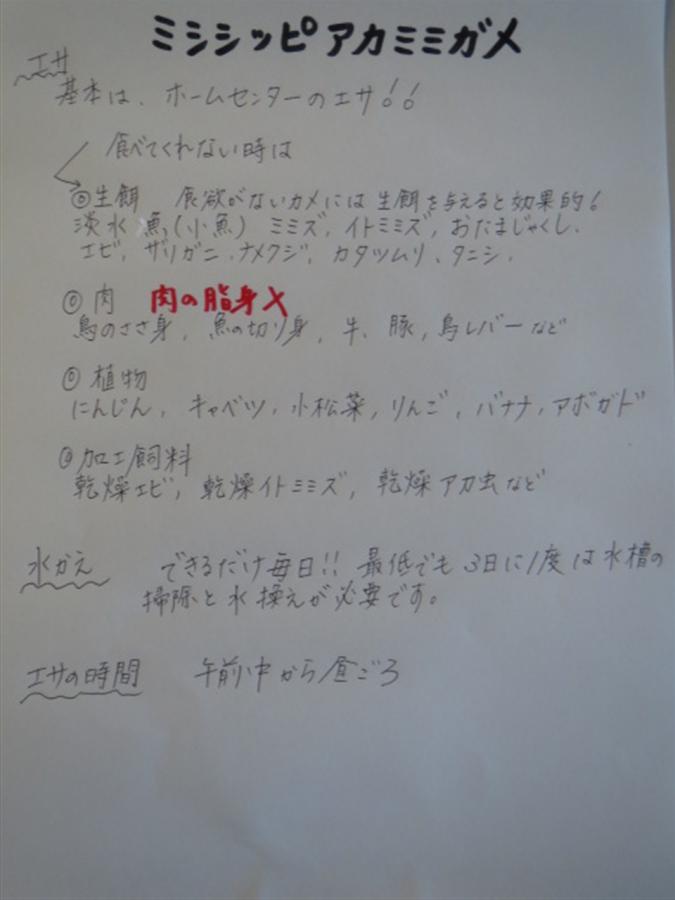 ミシシッピアカミミガメ
エサ
基本は、ホームセンターのエサ！！
食べてくれない時は
◎生餌 食欲がないカメには生餌を与えると効果的！
淡水魚(小魚) ミミズ, イトミミズ, おたまじゃくし、
エビ, ザリガニ、ナメクジ, カタツムリ、タニシ.
◎肉 肉の脂身×
鳥のささ身, 魚の切り身, 牛、豚, 鳥レバーなど
◎植物
にんじん, キャベツ, 小松菜, りんご, バナナ, アボガド
◎加工飼料
乾燥エビ, 乾燥イトミミズ, 乾燥アカ虫など
水かえ できるだけ毎日!! 最低でも3日に1度は水槽の
掃除と水換えが必要です。
エサの時間 午前中から昼ごろ